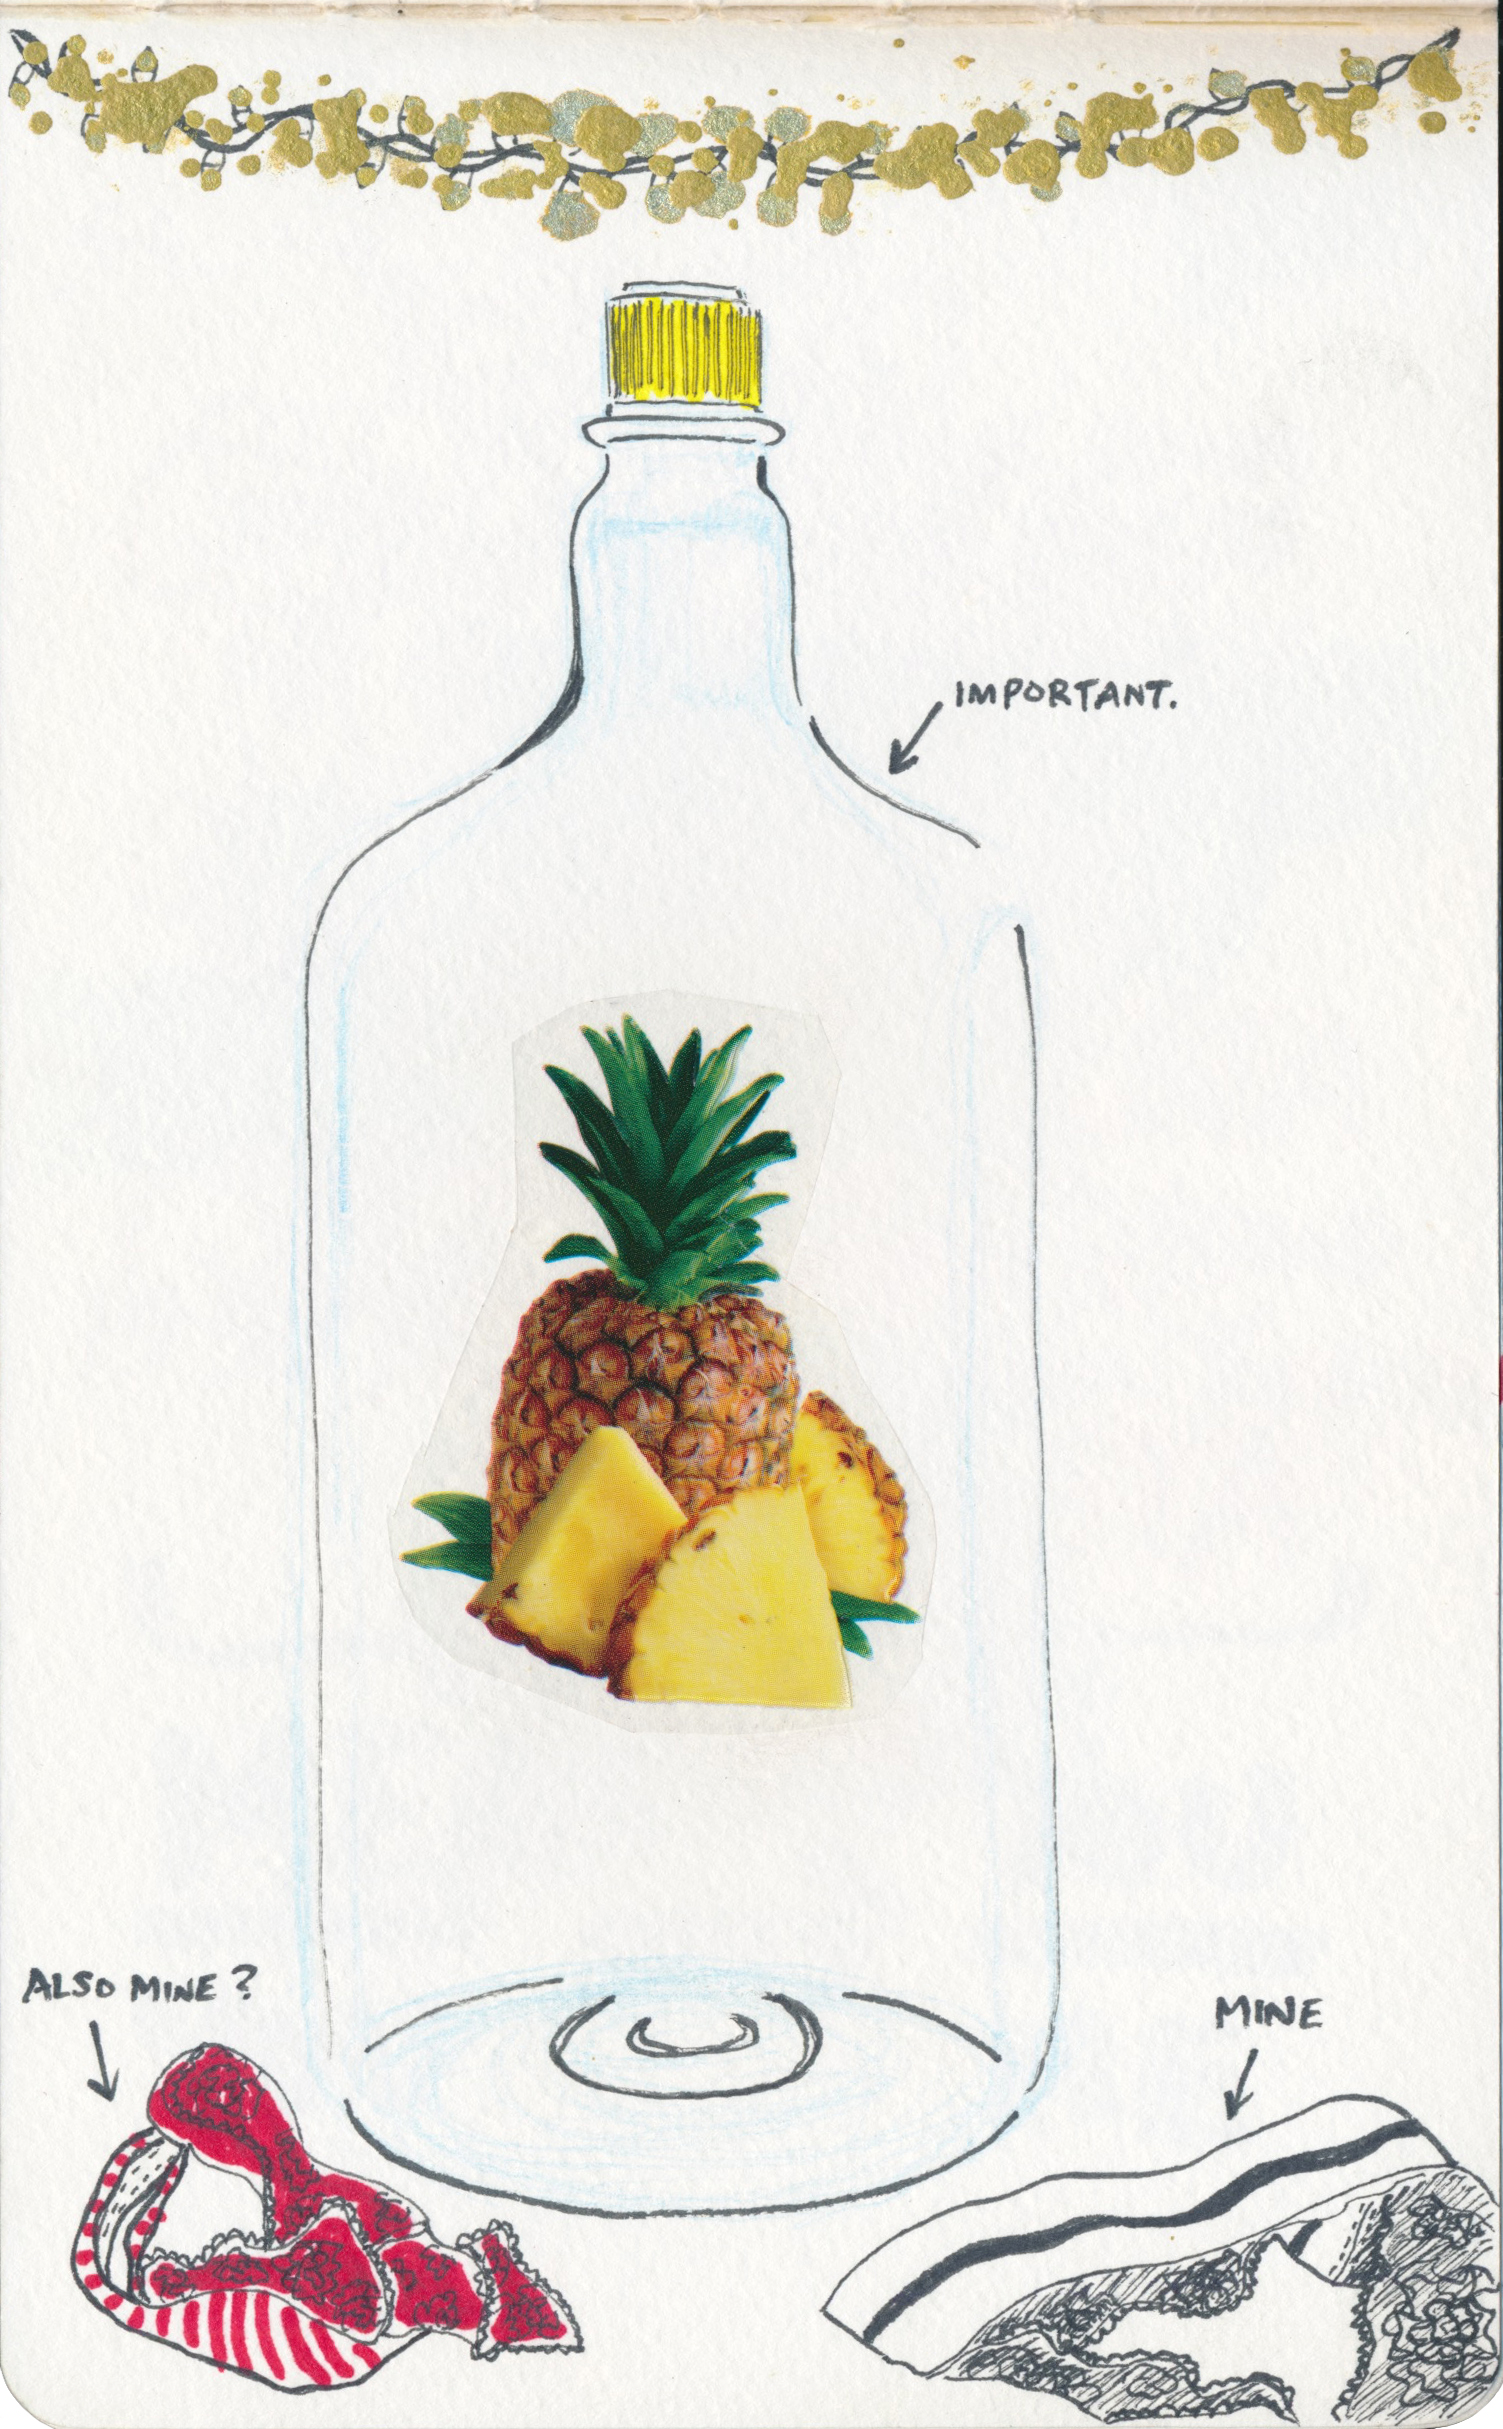 IMPORTANT.
ALSO MINE?
MINE